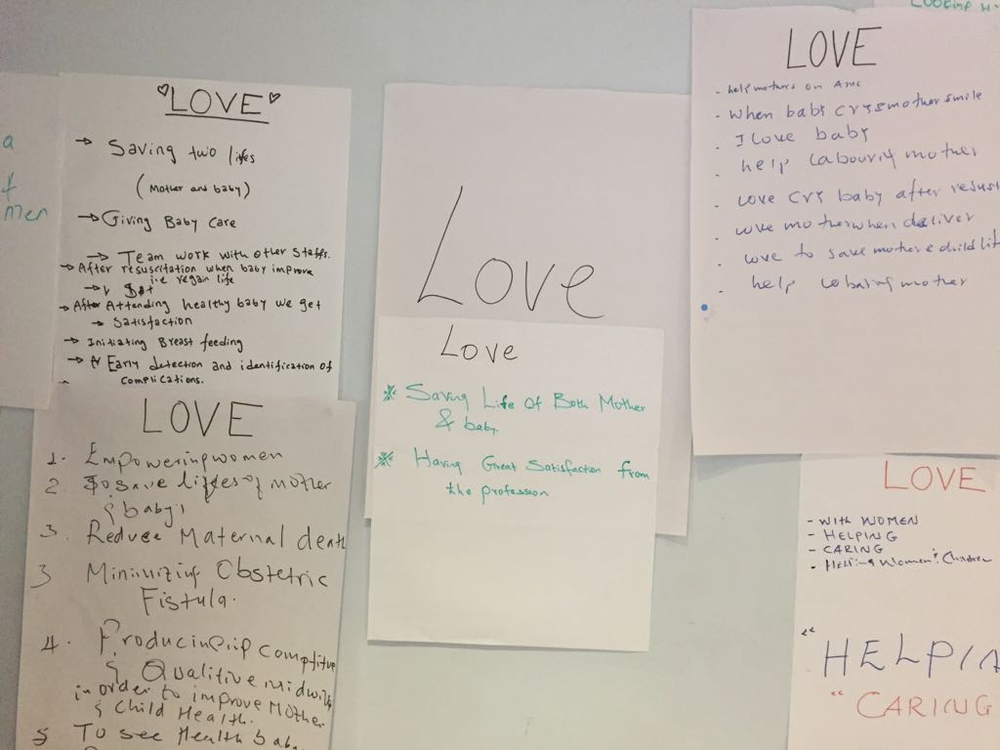 a
t
men
LOVE
→ Saving two lifes
(Mother and baby)
→ Giving Baby care
→ Team work with other staffs.
→ After resuscitation when baby improve
i.e regain life
→ After Attending healthy baby we get
→ Satisfaction
→ Initiating Breast feeding
→ Early detection and identification of
complications.
LOVE
1. Empowering women
2 To save lifes of mother
& baby
3. Reduce Maternal death
3 Minimizing Obstetric
Fistula.
4. Producing competitive
& Qualitive midwifs
in order to improve Mother
& Child Health.
5 To see Health bab
Love
Love
※ Saving Life Of Both Mother
& baby
※ Having Great Satisfaction from
the profession
Looking
LOVE
- help mothers on ANC
- When baby crys mother smile
. I love baby
. help labouring mother
. love cry baby after resus
. love mother when deliver
. love to save mother & child lif
. help labaring mother
LOVE
- WITH WOMEN
- HELPING
- CARING
- Helping Women & Children
"HELPIN
"CARING